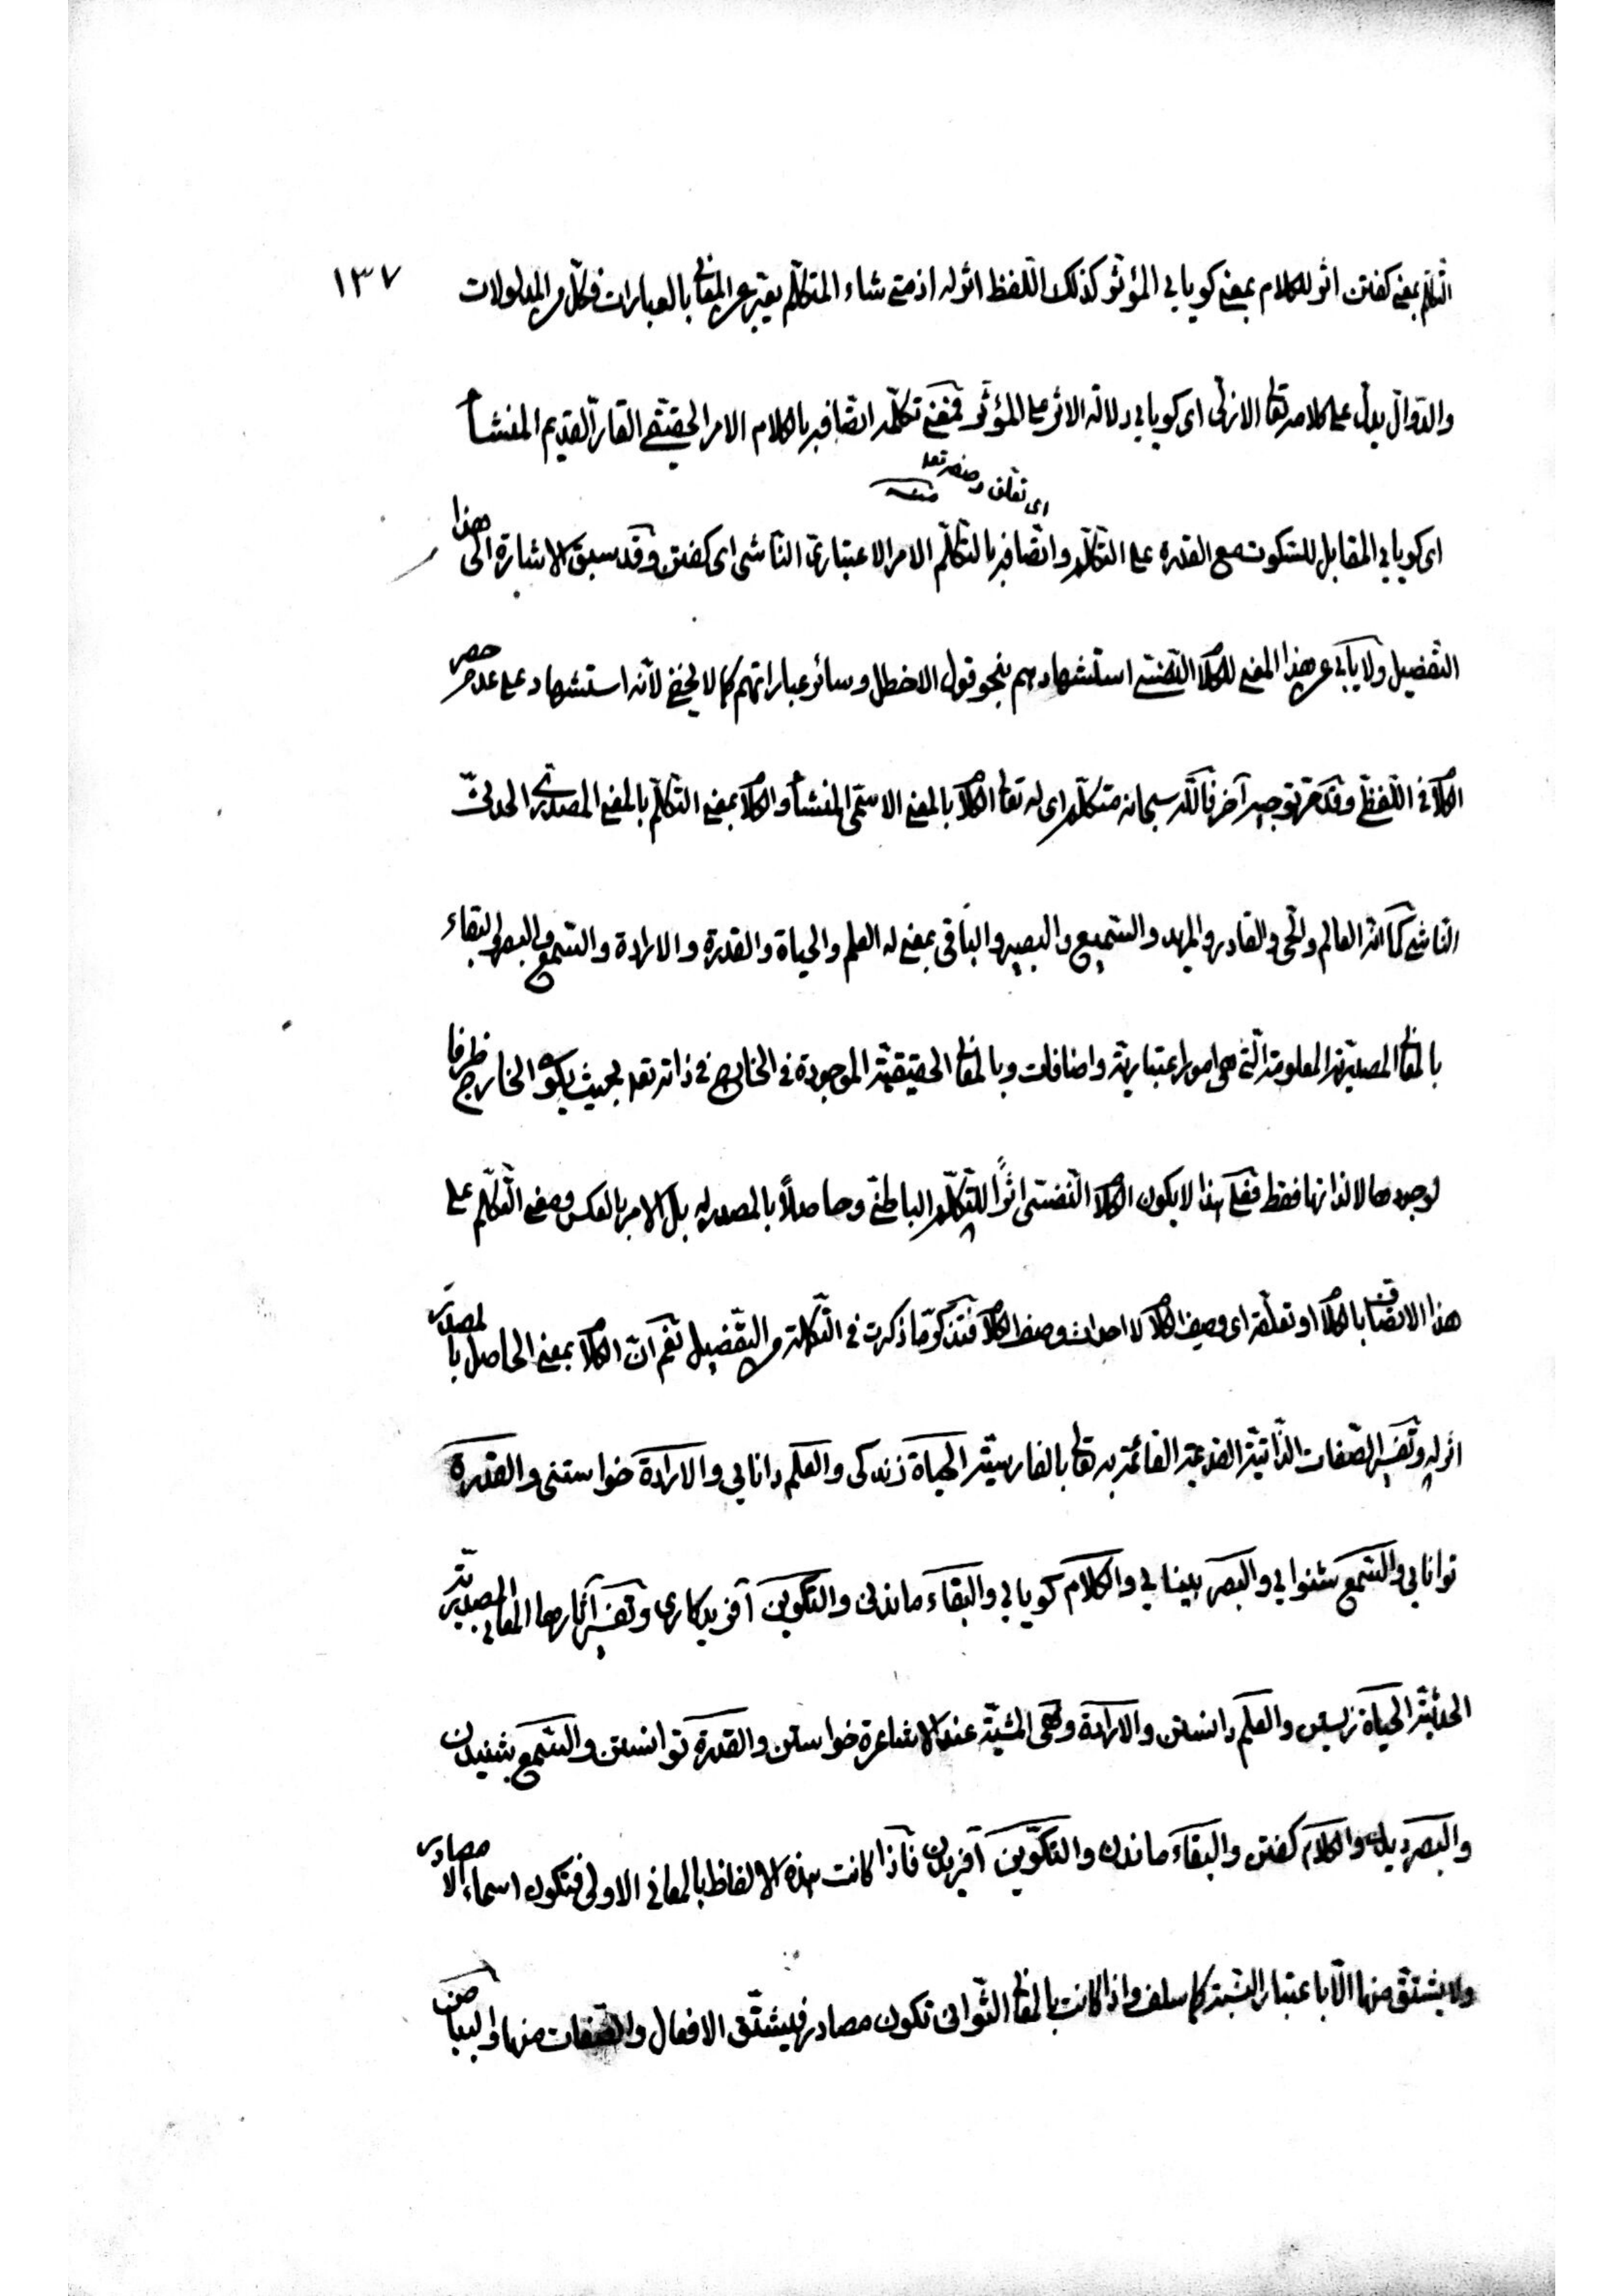 ١٣٧
التكلم بمعنى كفتن اثر للكلام بمعنى كويايي المؤثر كذلك اللفظ اثر له اذ متى شاء المتكلّم يعبّر عن المعانى بالعبارات فكلّ من المدلولات
والدّوالّ يدلّ على كلامه تعا الازلى اى كويايي دلالة الاثر على المؤثّر فمعنى تكلّمه اتّصافه بالكلام الامر الحقيقى القارّ القديم المنشأ
اى تعلق وصفه تعا منه
اى كويايي المقابل للسّكوت مع القدرة على التكلّم واتّصافه بالتكلّم الامر الاعتبارىّ النّاشى اى كفتن وقد سبق الاشارة الى هذا
التفصيل ولا يأبى عن هذا المعنى للكلا النفسى استشهادهم بنحو قول الاخطل وسائر عباراتهم كما لا يخفى لانّه استشهاد على عدم حصر
الكلا فى اللّفظى وقد مرّ توجيه آخر فاللّه سبحانه متكلّم اى له تعا الكلا بالمعنى الاسمى المنشأ والكلا بمعنى التكلّم بالمعنى المصدرى الحدثىّ
الناشى كما انّه العالم والحى والقادر والمريد والسّميع والبصير والباقى بمعنى له العلم والحياة والقدرة والارادة والسّمع والبصر والبقاء
بالمعانى المصدريّة المعلومة الّتى هى امور اعتباريّة واضافات وبالمعانى الحقيقيّة الموجودة فى الخارج فى ذاته تعا بحيث يكون الخارج ظرفا
لوجودها لا لذاتها فقط فعلى هذا لا يكون الكلا النفسى اثرًا للتكلّم الباطنىّ وحاصلًا بالمصدر له بل الامر بالعكس ومعنى التكلّم على
هذا الاتصاف بالكلا او تعلّقه اى وصف الكلا لا احداث وصف الكلا فتذكّر ما ذكرت فى التكملة والتفصيل نعم انّ الكلا بمعنى الحاصل بالمصدر
اثر له وتفسير الصّفات الذّاتيّة القديمة القائمة به تعا بالفارسيّة الحياة زندكى والعلم دانايي والارادة خواستنى والقدرة
توانايي والسّمع شنوايي والبصر بينايي والكلام كويايي والبقاء ماندنى والتكوين آفريدكارى وتفسير آثارها المعانى المصدريّة
الحدثيّة الحياة زيستن والعلم دانستن والارادة وهى المشيّة عند الاشاعرة خواستن والقدرة توانستن والسّمع شنيدن
والبصر ديدن والكلام كفتن والبقاء ماندن والتكوين آفريدن فاذا كانت هذه الالفاظ بالمعانى الاولى فتكون اسماء لا مصادر
ولا يشتق منها الّا باعتبار النسبة كما سلف واذا كانت بالمعانى الثّوانى تكون مصادر فيشتق الافعال والصفات منها